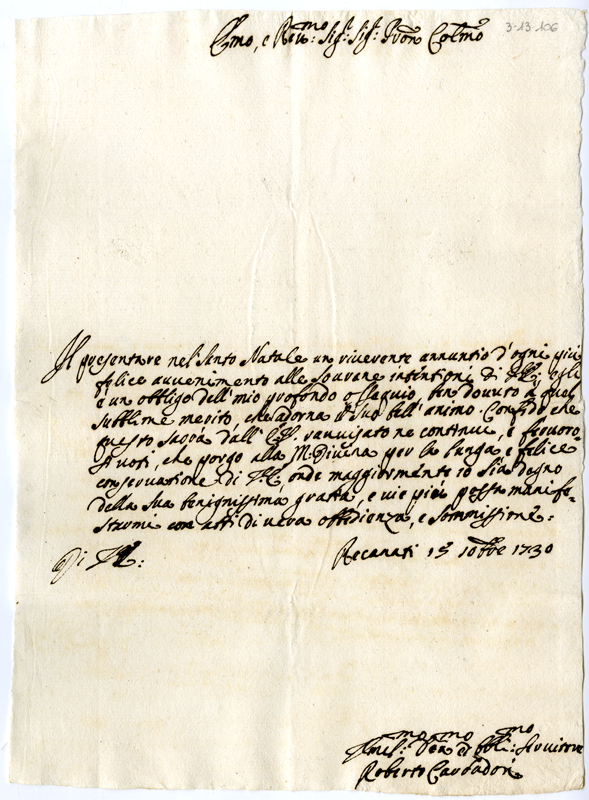 Emo, e Revmo: Sigr: Sigr: Pron Colmo
3-13-106
Il presentare nel Santo Natale un riverente annuntio d'ogni più
felice avvenimento alle sovrane intentioni di V.E.; egli
è un obbligo dell'mio profondo ossequio, ben dovuto a quel
subblime merito, che adorna il suo bell'animo. Confido che
questo sarà dall'E.V. ravvisato ne continui, e fervoro-
si voti, che porgo alla M. Divina per la lunga, e felice
conservatione di V.E. onde maggiormente io sia degno
della sua benignissima gratia, e vie più possa manife-
starmi con atti di vera obbidienza, e sommissione:
Di V.E:
Recanati 15 10bre 1730
Umilmo Devmo ed Obblimo: Servitore
Roberto Carradori